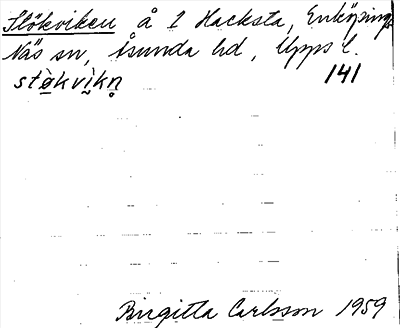 Stökviken å 1 Hacksta, Enköpings-
Näs sn, Åsunda hd, Upps l.
stø̀kvìkn̥ 141
Birgitta Carlsson 1959